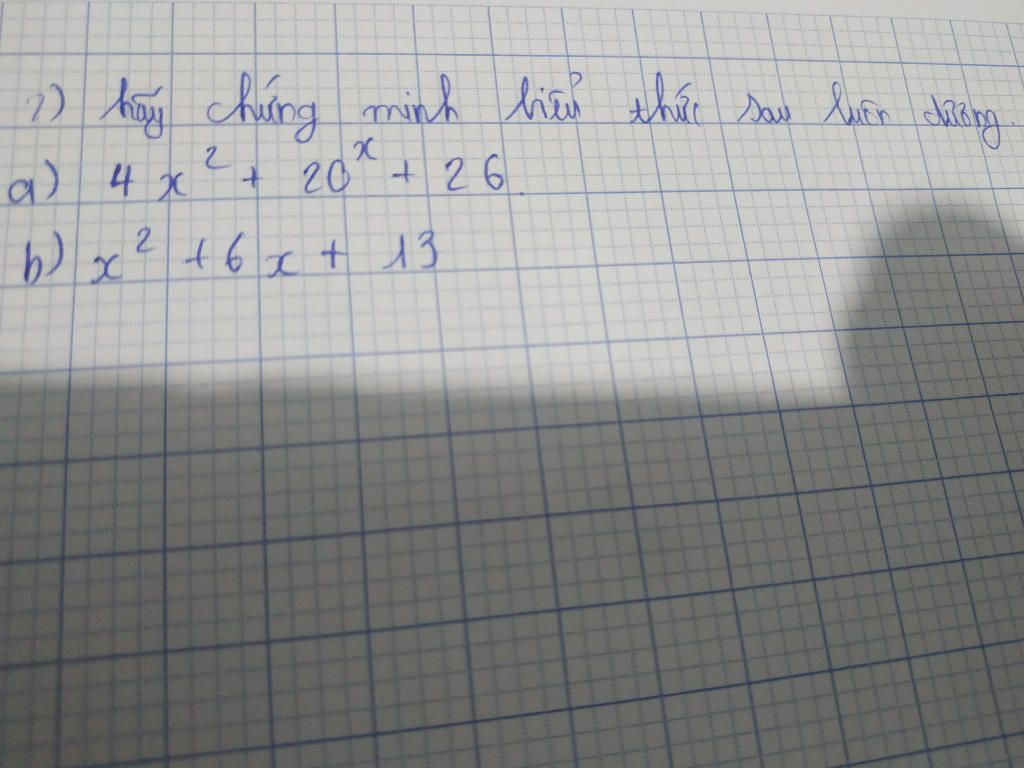 ?) hãy chứng minh biểu thức sau luôn dương.
a) 4x² + 20ˣ + 26.
b) x² + 6x + 13